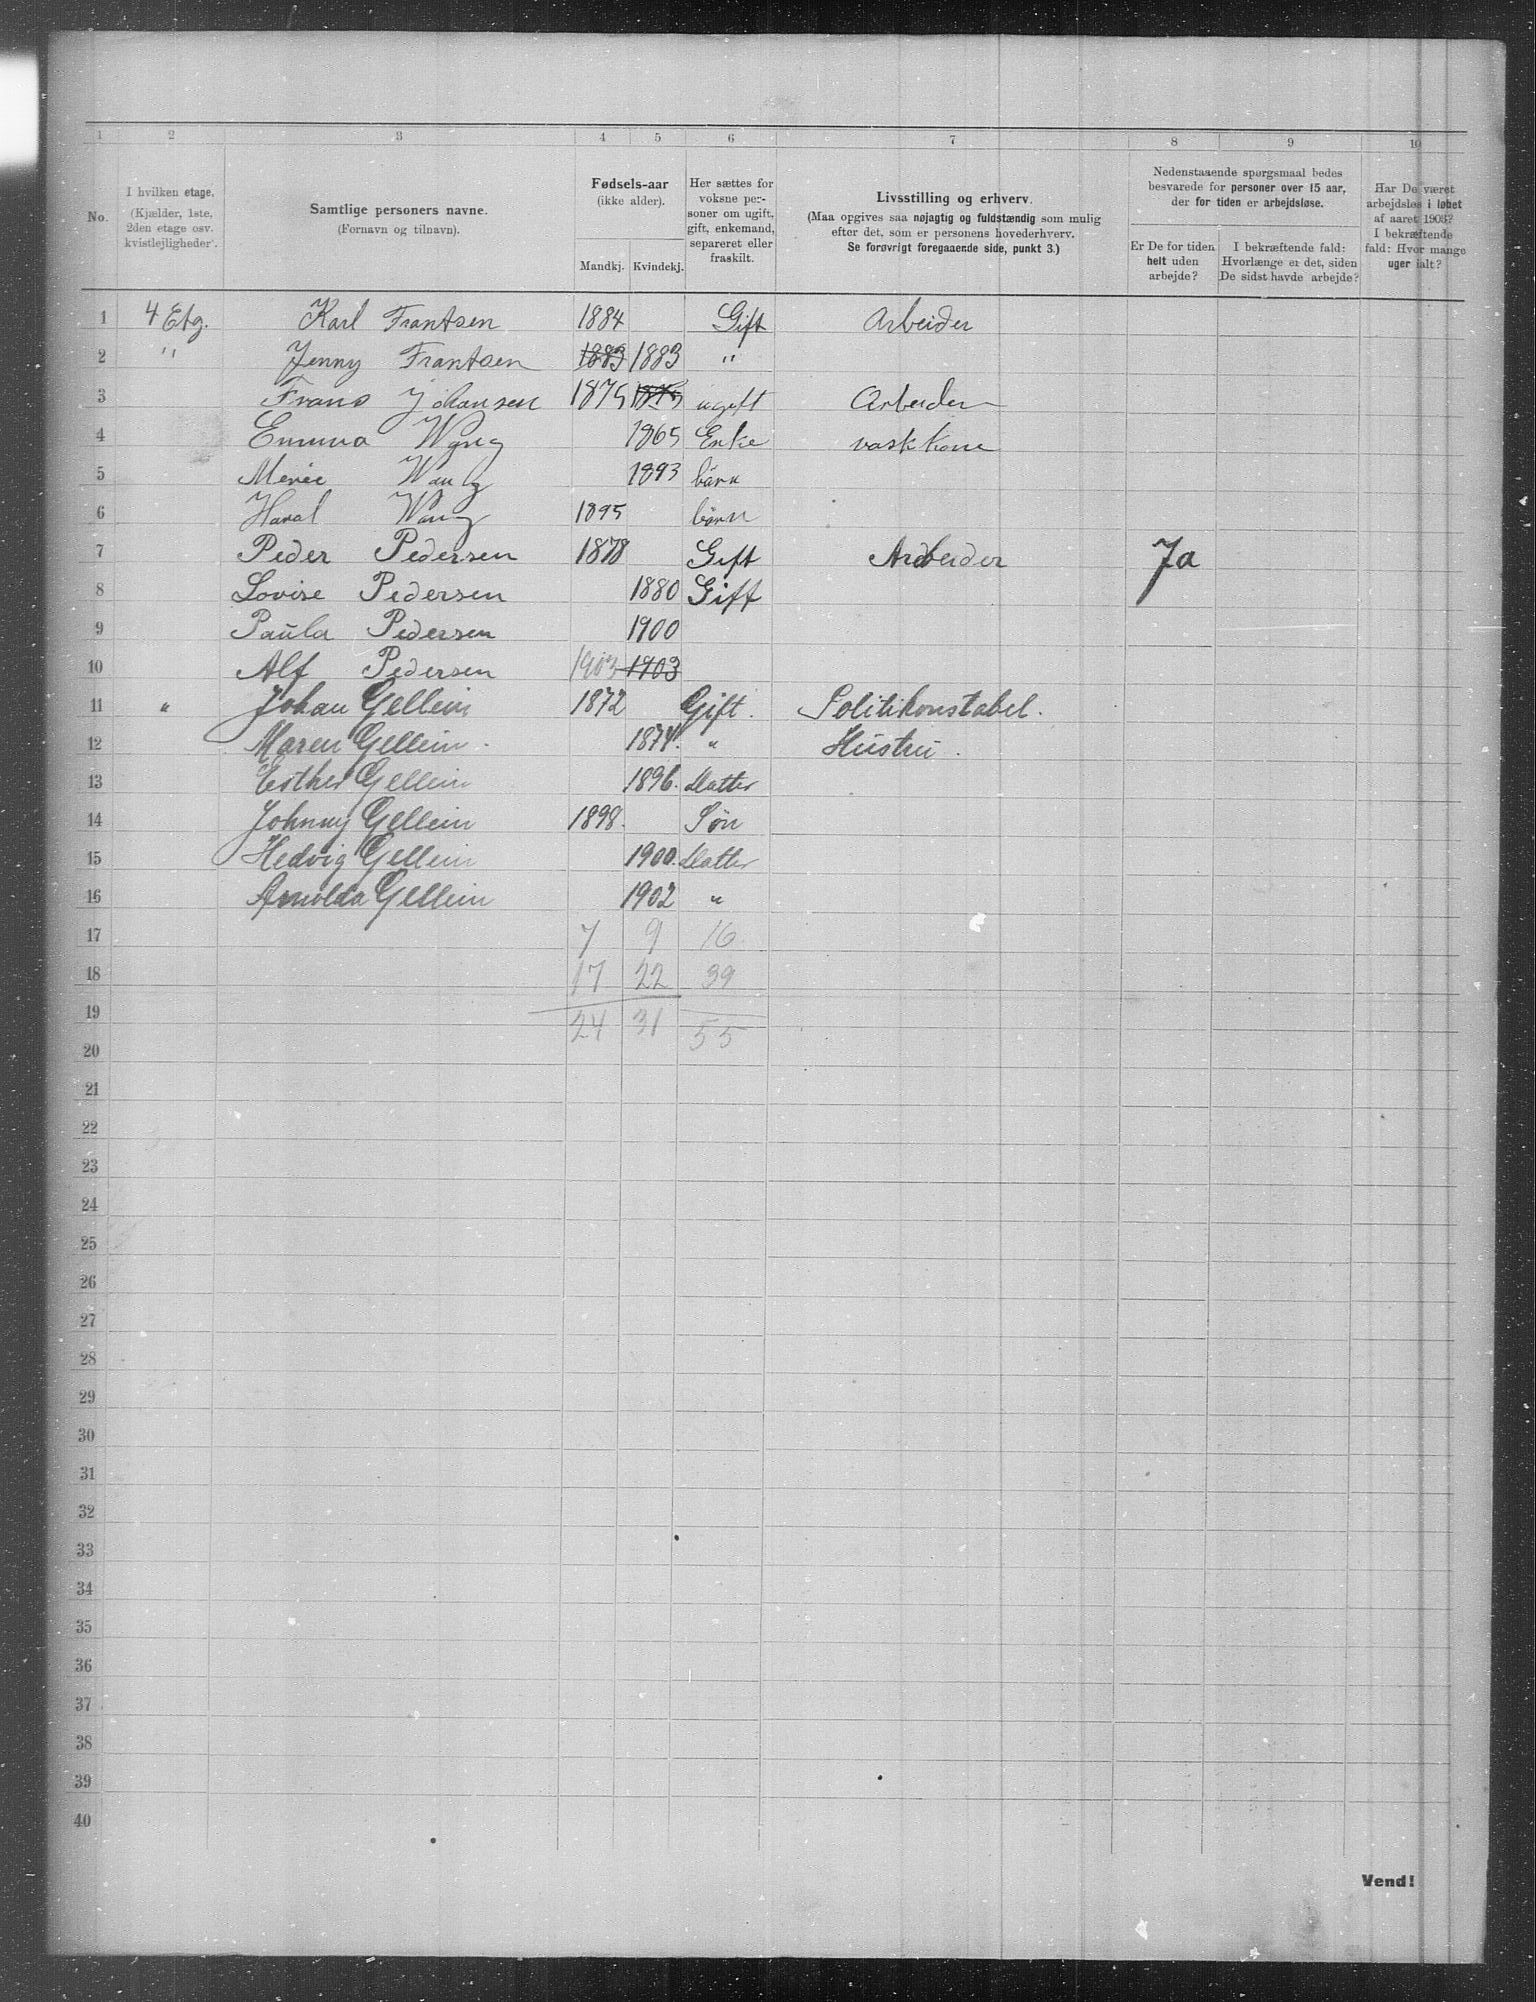 1 2 3 4 5 6 7 8 9 10
No.
I hvilken etage.
(Kjælder, 1ste,
2den etage osv.
kvistlejligheder).
Samtlige personers navne.
(Fornavn og tilnavn).
Fødsels-aar
(ikke alder).
Mandkj. Kvindekj.
Her sættes for
voksne per-
soner om ugift,
gift, enkemand,
separeret eller
fraskilt.
Livsstilling og erhverv.
(Maa opgives saa nøjagtig og fuldstændig som mulig
efter det, som er personens hovederhverv.
Se forøvrigt foregaaende side, punkt 3.)
Nedenstaaende spørgsmaal bedes
besvarede for personer over 15 aar,
der for tiden er arbejdsløse.
Er De for tiden
helt uden
arbejde?
I bekræftende fald:
Hvorlænge er det, siden
De sidst havde arbejde?
Har De været
arbejdsløs i løbet
af aaret 1903?
I bekræftende
fald: Hvor mange
uger ialt?
1 4 Etg. Karl Frantsen 1884 Gift Arbeider
2 " Jenny Frantsen 1883 1883 "
3 Frans Johansen 1875 1875 ugift Arbeider
4 Emma Wang 1865 Enke vaskkone
5 Merie Wang 1893 bärn
6 Haral Wang 1895 börn
7 Peder Pedersen 1878 Gift Arbeider Ja
8 Lovise Pedersen 1880 Gift
9 Paula Pedersen 1900
10 Alf Pedersen 1903 1903
11 " Johan Gellein 1872 Gift. Politikonstabel.
12 Maren Gellein. 1874. " Hustru.
13 Esther Gellein 1896. Datter
14 Johnny Gellein 1898. Søn
15 Hedvig Gellein 1900. Datter
16 Arnolda Gellein 1902 "
17 7 9 16
18 17 22 39
19 24 31 55
20
21
22
23
24
25
26
27
28
29
30
31
32
33
34
35
36
37
38
39
40
Vend!